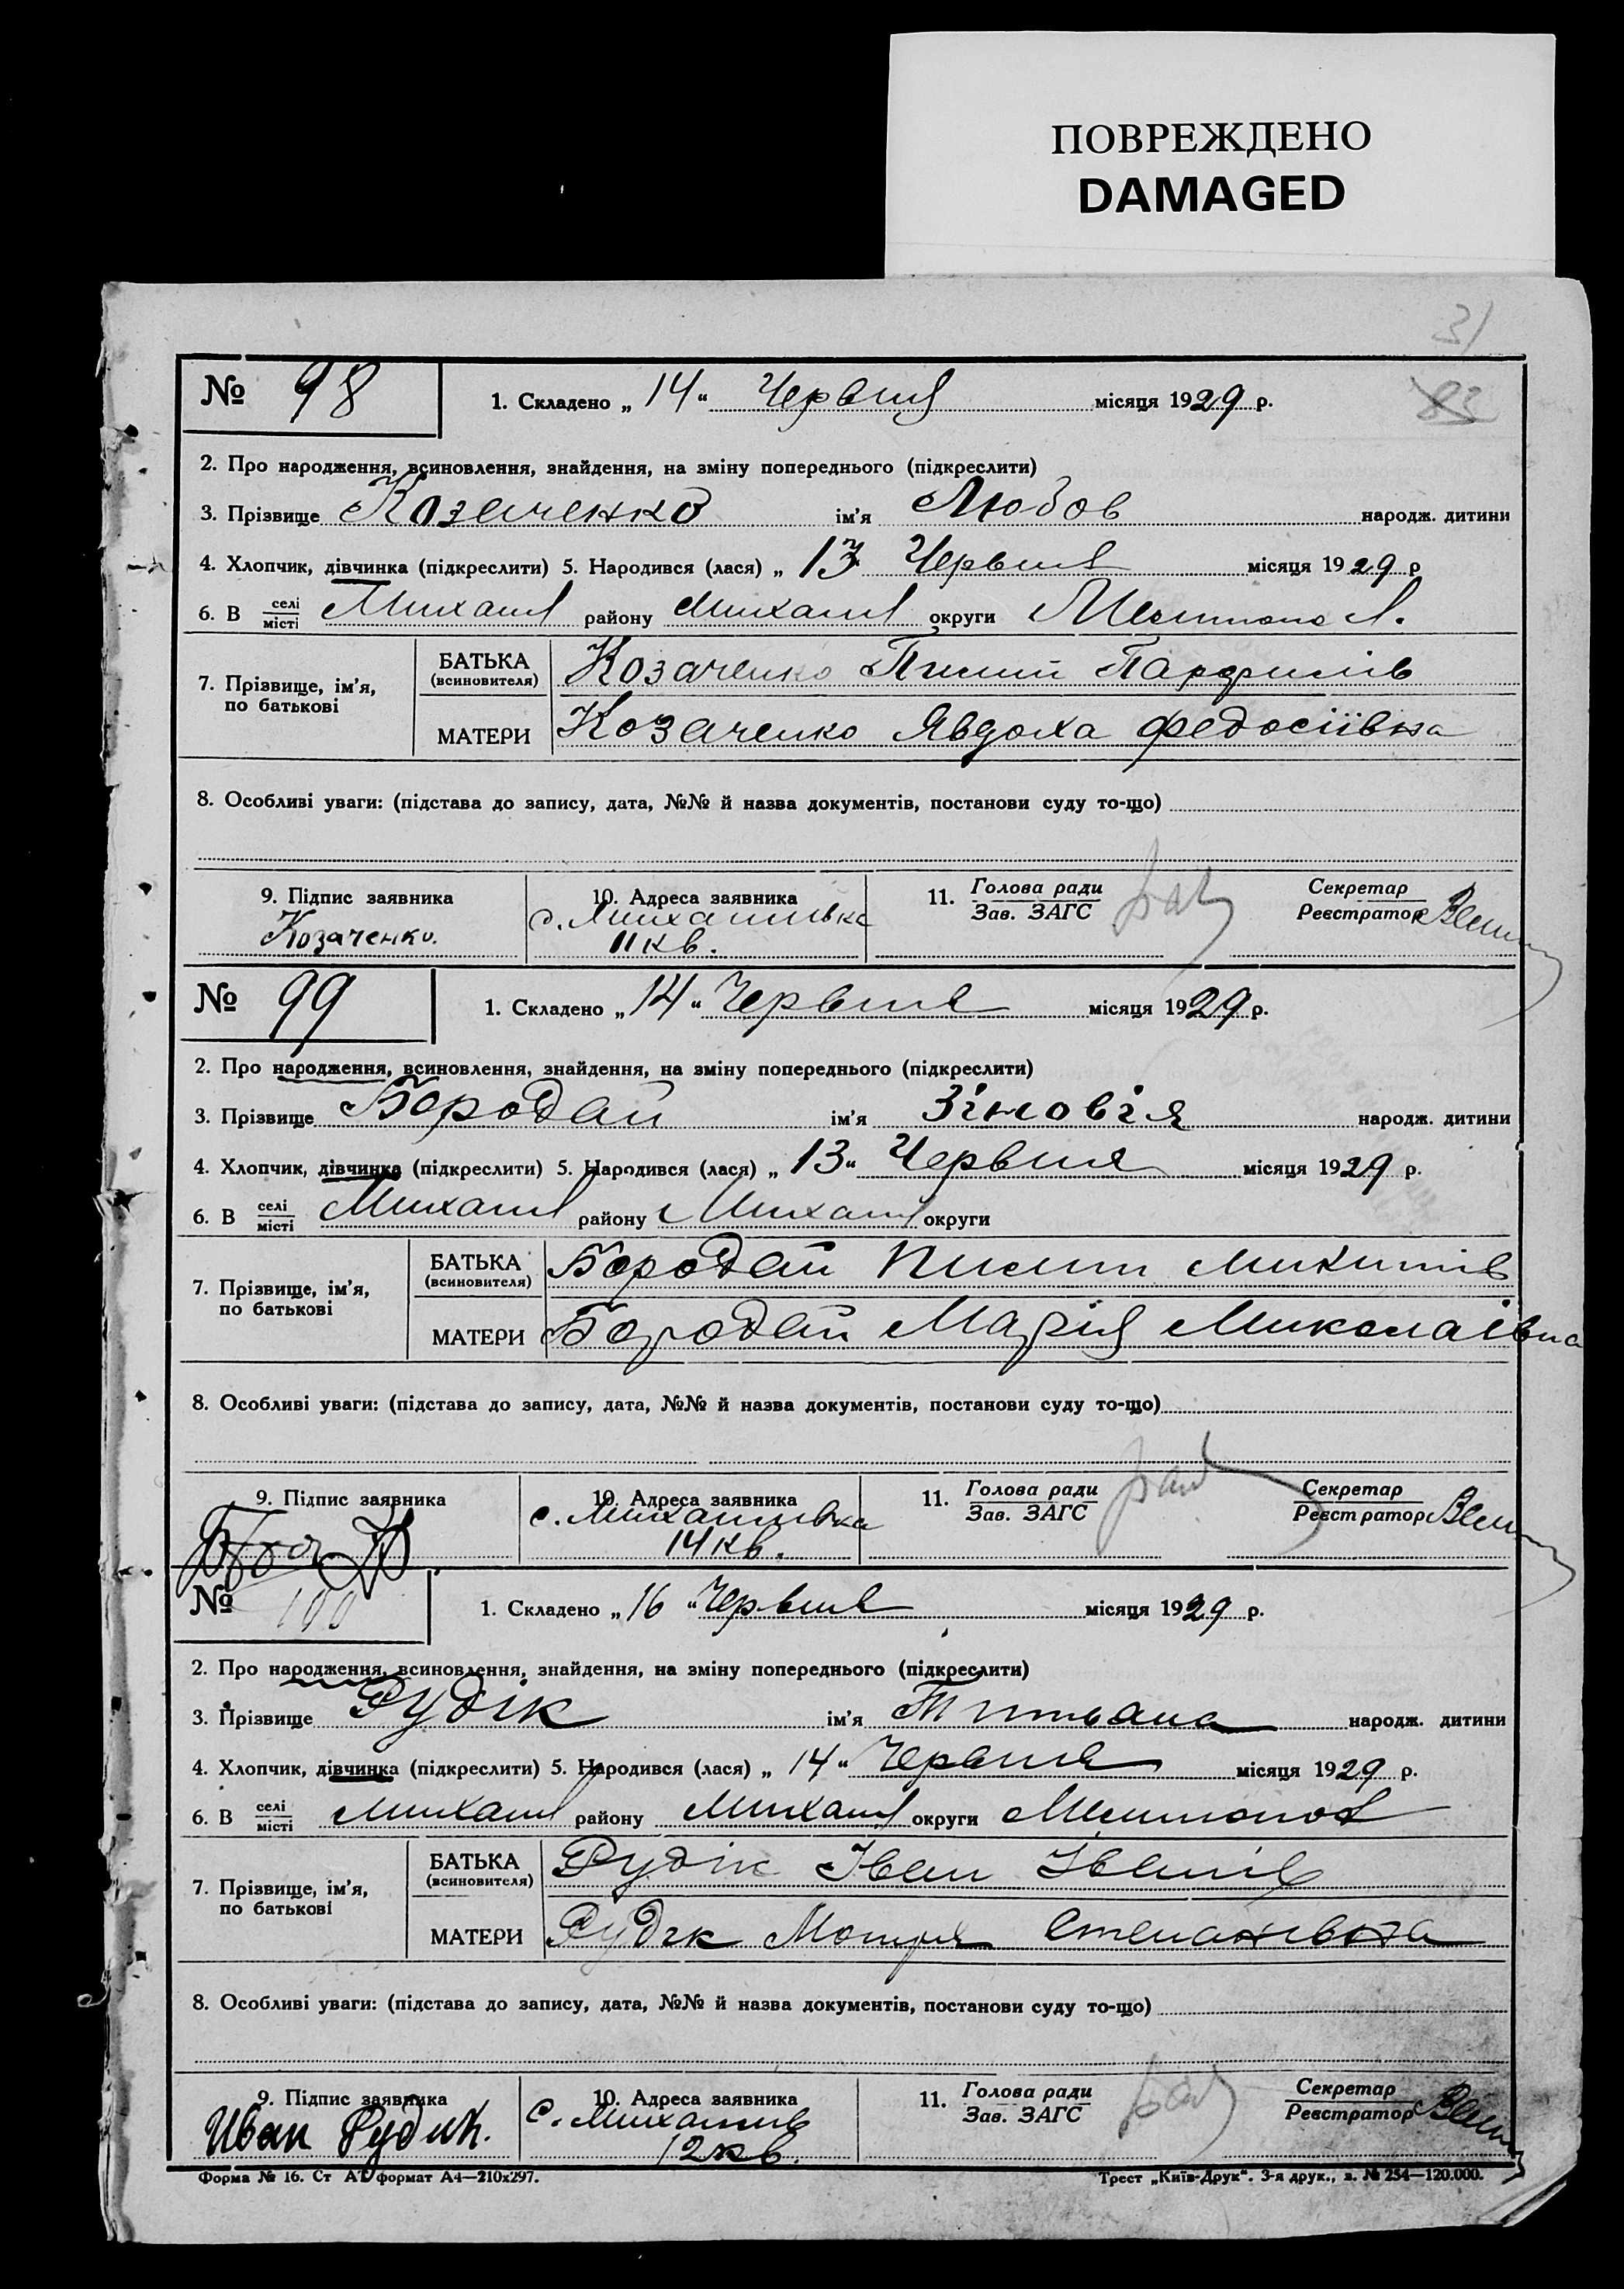 ПОВРЕЖДЕНО
DAMAGED
31
83
№ 98
1. Складено „14“ Червня місяця 1929 р.
2. Про народження, всиновлення, знайдення, на зміну попереднього (підкреслити)
3. Прізвище Козаченко ім’я Любов народж. дитини
4. Хлопчик, дівчинка (підкреслити) 5. Народився (лася) „13 Червня місяця 1929 р
6. В селі місті Михайл району Михайл округи
7. Прізвище, ім’я, по батькові
БАТЬКА (всиновителя) Козаченко Пилип
МАТЕРИ Козаченко Явдоха Федосіївна
8. Особливі уваги: (підстава до запису, дата, №№ й назва документів, постанови суду то-що)
9. Підпис заявника 10. Адреса заявника 11. Голова ради Зав. ЗАГС Секретар Реєстратор
Козаченко. с. Михайлівка
11 кв.
№ 99
1. Складено „14“ Червня місяця 1929 р.
2. Про народження, всиновлення, знайдення, на зміну попереднього (підкреслити)
3. Прізвище Бородай ім’я Зіновія народж. дитини
4. Хлопчик, дівчинка (підкреслити) 5. Народився (лася) „13“ Червня місяця 1929 р.
6. В селі місті Михайл району Михайл округи
7. Прізвище, ім’я, по батькові
БАТЬКА (всиновителя) Бородай Пилип Микитів
МАТЕРИ Бородай Марія Миколаївна
8. Особливі уваги: (підстава до запису, дата, №№ й назва документів, постанови суду то-що)
9. Підпис заявника 10. Адреса заявника 11. Голова ради Зав. ЗАГС Секретар Реєстратор
с. Михайлівка
14 кв.
№ 100
1. Складено „16“ Червня місяця 1929 р.
2. Про народження, всиновлення, знайдення, на зміну попереднього (підкреслити)
3. Прізвище Рудік ім’я Титьана народж. дитини
4. Хлопчик, дівчинка (підкреслити) 5. Народився (лася) „14“ Червня місяця 1929 р.
6. В селі місті Михайл району Михайл округи
7. Прізвище, ім’я, по батькові
БАТЬКА (всиновителя) Рудік Іван Іванів
МАТЕРИ Рудік Мотря Степанівна
8. Особливі уваги: (підстава до запису, дата, №№ й назва документів, постанови суду то-що)
9. Підпис заявника 10. Адреса заявника 11. Голова ради Зав. ЗАГС Секретар Реєстратор
Иван Рудик. с. Михайлів
12 кв.
Форма № 16. Ст АТ формат А4—210х297. Трест „Київ-Друк“. 3-я друк., з. № 254—120.000.